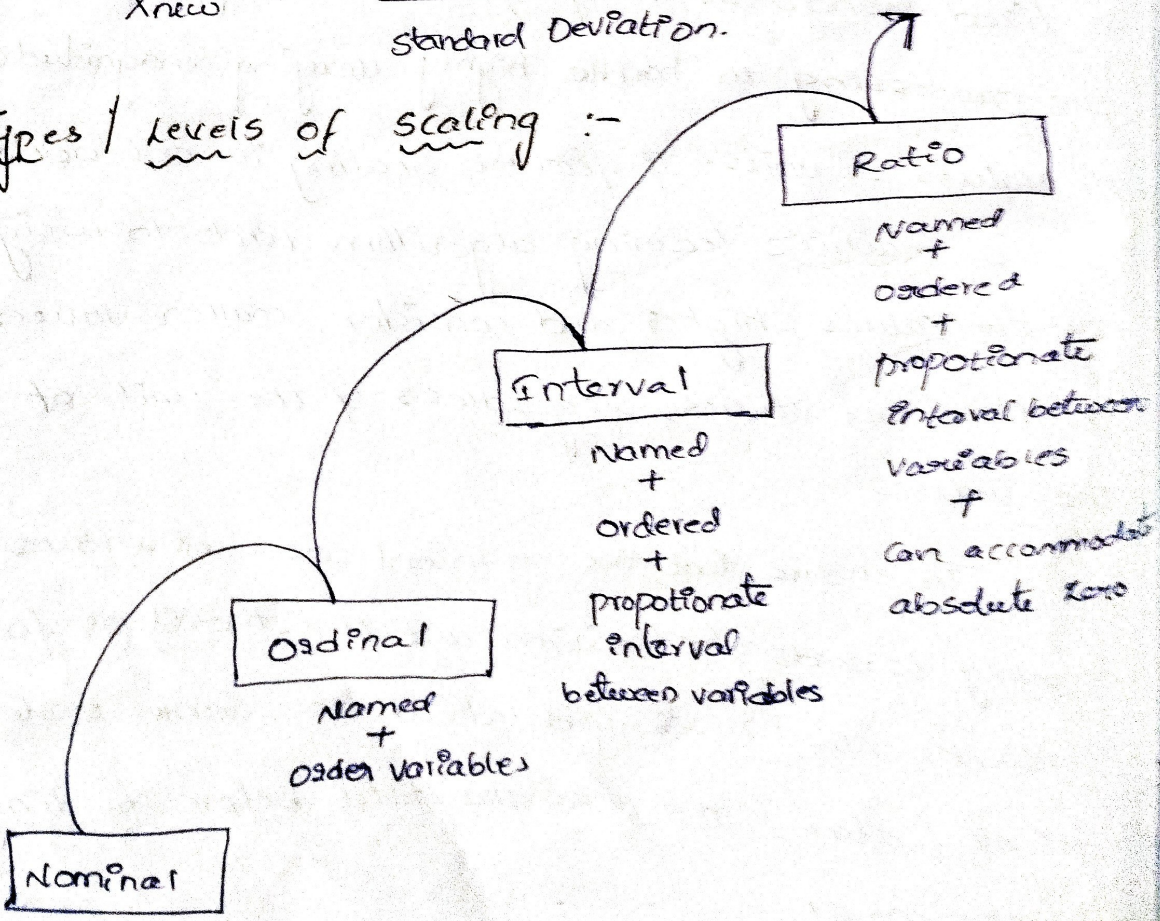 Xnew
Standard Deviation.
ypes / Levels of scaling :-
Ratio
Named
+
ordered
+
propotionate
interval between
variables
+
can accommodate
absolute zero
Interval
Named
+
ordered
+
propotionate
interval
between variables
Ordinal
Named
+
Order variables
Nominal